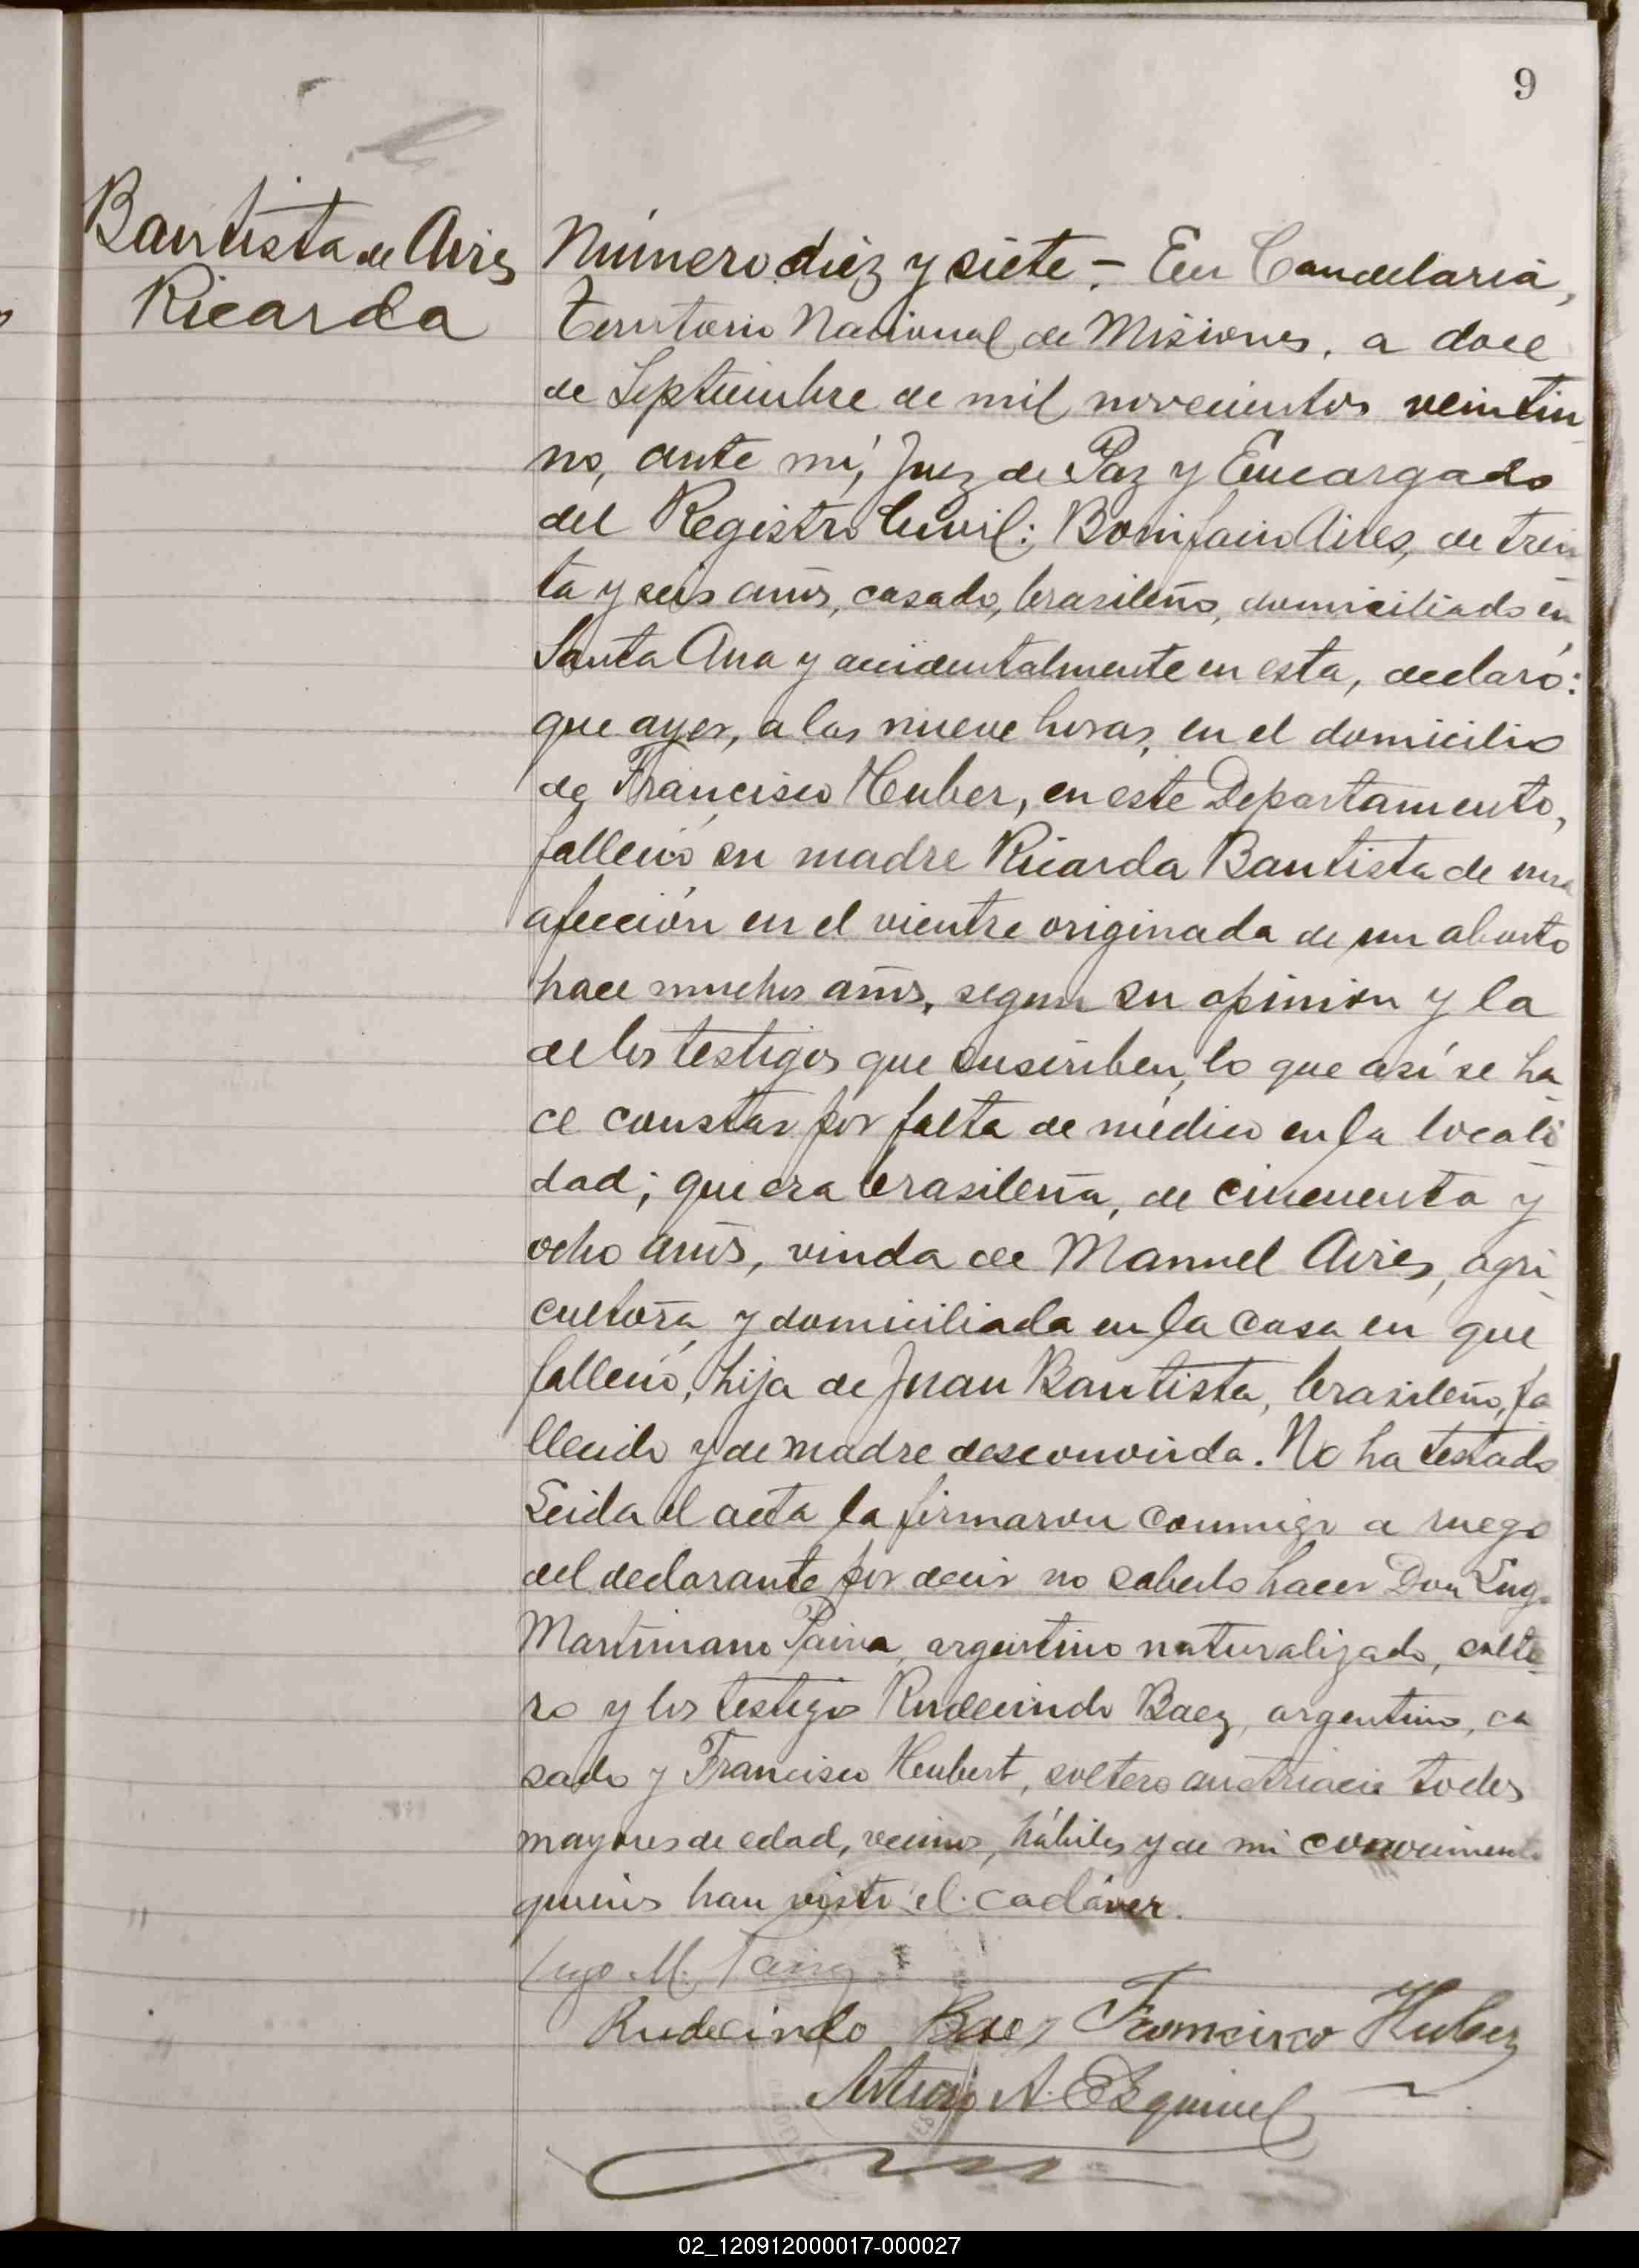 9
Bautista de Aires
Ricarda
Número diez y siete - En Candelaria,
Territorio Nacional de Misiones, a doce
de Septiembre de mil novecientos veintiu
no, ante mí, Juez de Paz y Encargado
del Registro Civil: Bonifacio Aires, de trein
ta y seis años, casado, brasileño, domiciliado en
Santa Ana y accidentalmente en esta, declaró:
que ayer, a las nueve horas, en el domicilio
de Francisco Huber, en este Departamento,
falleció su madre Ricarda Bautista de una
afección en el vientre originada de un aborto
hace muchos años, segun su opinion y la
de los testigos que suscriben, lo que así se ha
ce constar por falta de médico en la locali
dad; que era brasileña, de cincuenta y
ocho años, viuda de Manuel Aires, agri
cultora y domiciliada en la casa en que
falleció, hija de Juan Bautista, brasileño, fa
llecido y de madre desconocida. No ha testado
Leida el acta la firmaron conmigo a ruego
del declarante por decir no saberlo hacer Don Lugo
Martiniano Paiva, argentino naturalizado, solte
ro y los testigos Rudecindo Baez, argentino, ca
sado y Francisco Heubert, soltero austriaco todos
mayores de edad, vecinos, hábiles y de mi conocimiento
quienes han visto el cadáver.
Lugo M. Paiva
Rudecindo Baez Francisco Huber
Arturo A. Esquivel
02_120912000017-000027